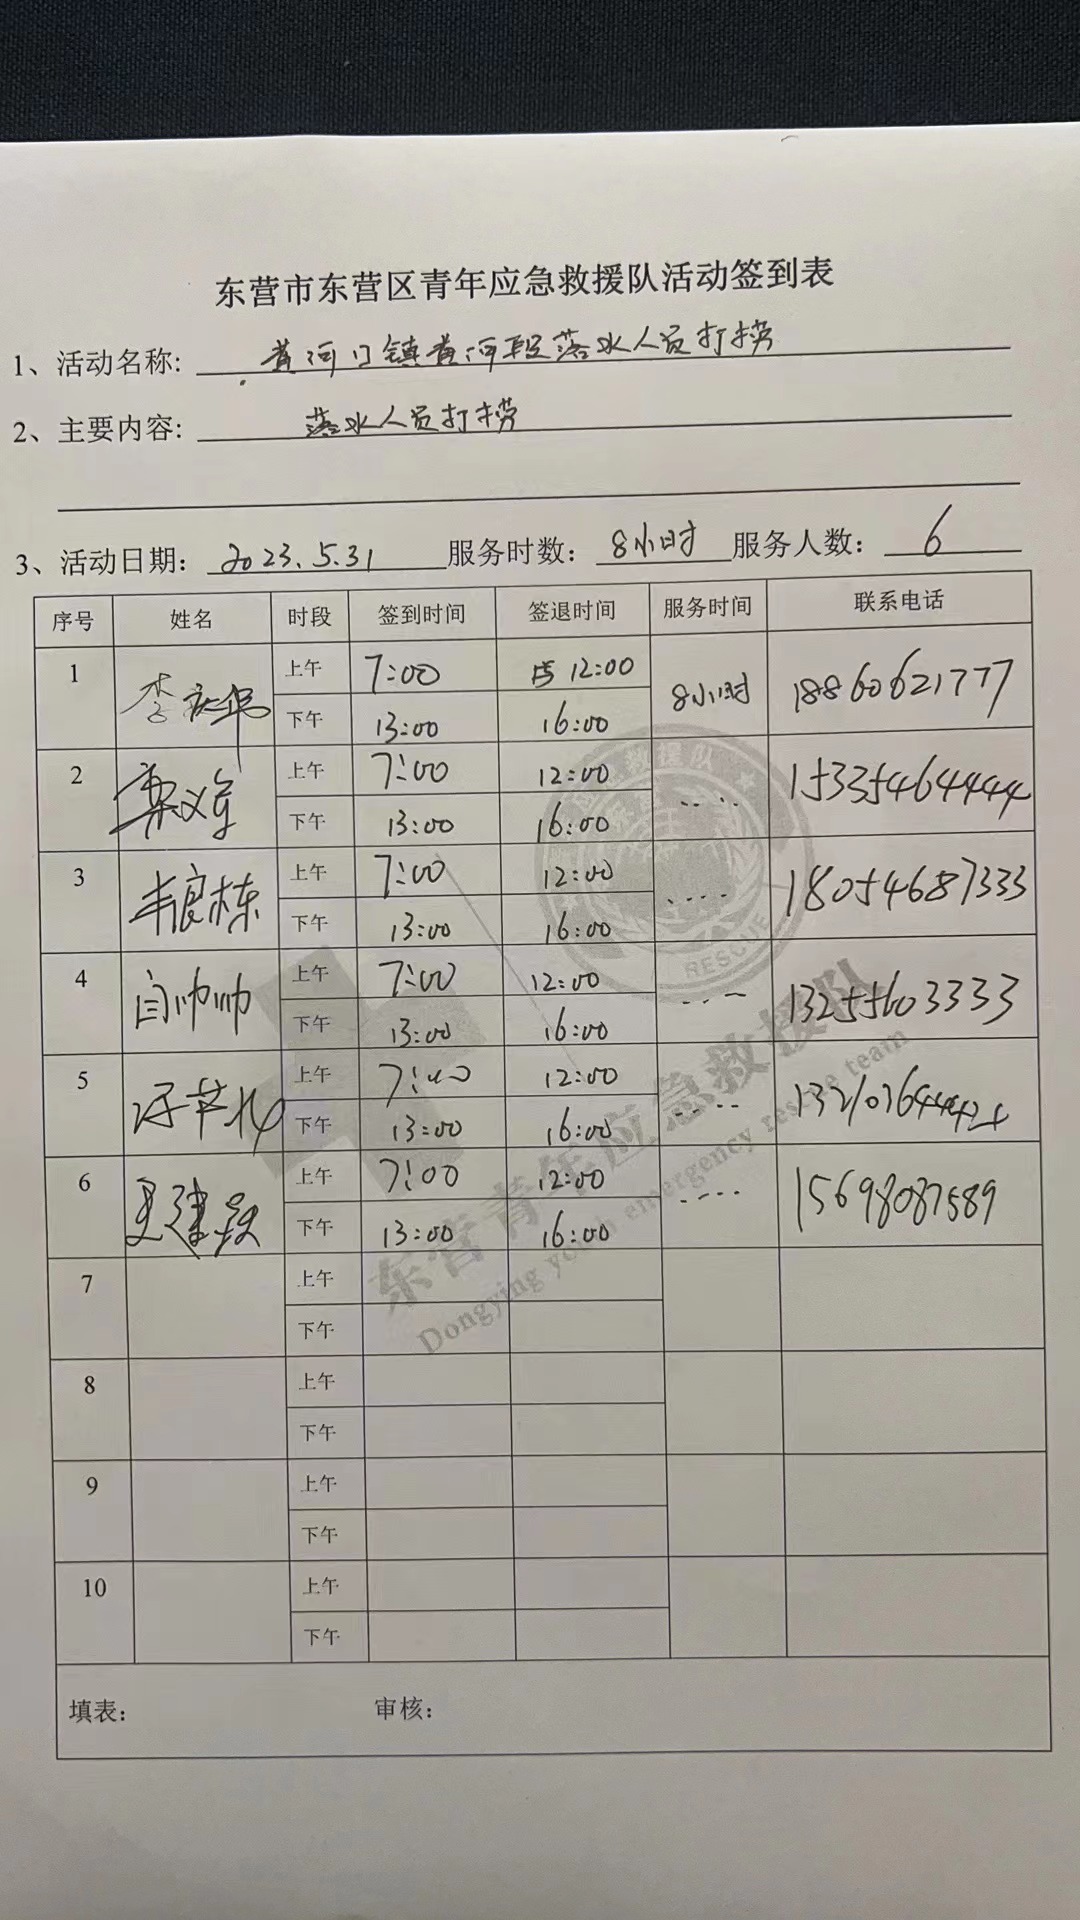 东营市东营区青年应急救援队活动签到表
1、活动名称: 黄河口镇黄河段落水人员打捞
2、主要内容: 落水人员打捞
3、活动日期: 2023.5.31 服务时数: 8小时 服务人数: 6
序号 姓名 时段 签到时间 签退时间 服务时间 联系电话
1 上午 7:00 12:00 8小时 18860621777
下午 13:00 16:00
2 上午 7:00 12:00 15335464444
下午 13:00 16:00
3 上午 7:00 12:00 18054687333
下午 13:00 16:00
4 闫帅帅 上午 7:00 12:00 13255603333
下午 13:00 16:00
5 上午 7:00 12:00
下午 13:00 16:00
6 上午 7:00 12:00 15698087589
下午 13:00 16:00
7 上午
下午
8 上午
下午
9 上午
下午
10 上午
下午
填表: 审核:
救援队
RESCUE
东营青年应急救援队
Dongying youth emergency rescue team